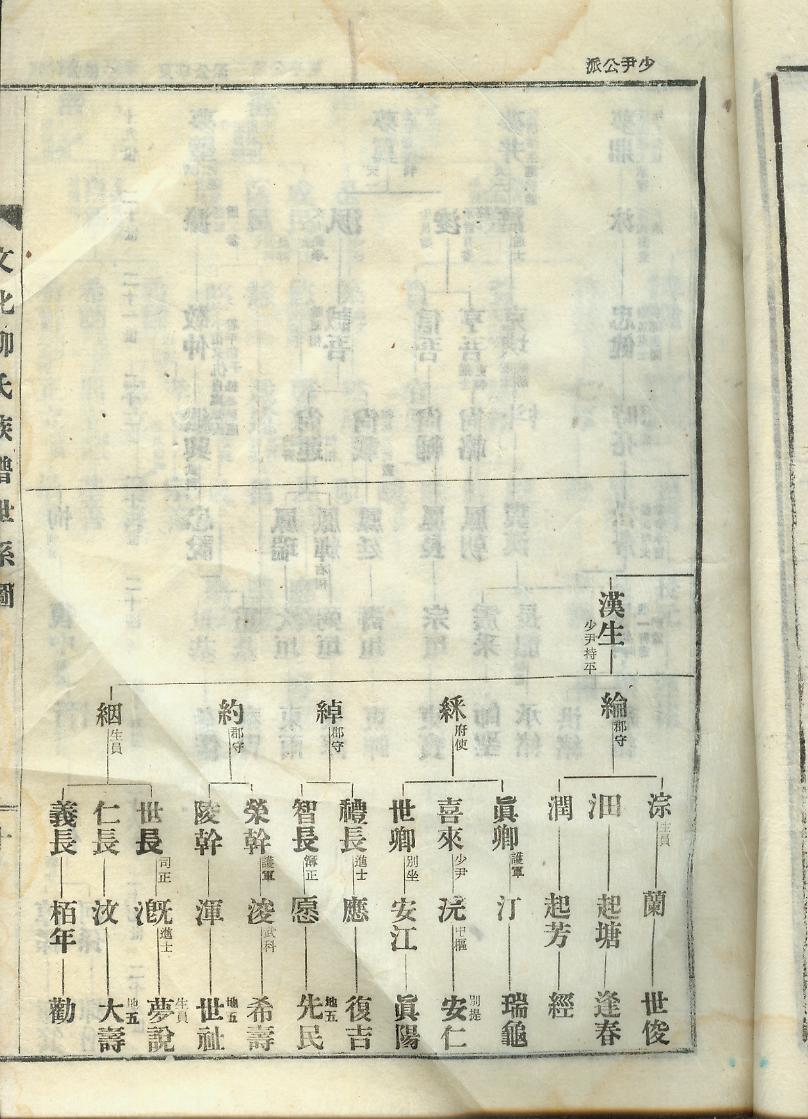 少尹公派
漢生 少尹持平
綸 郡守
綵 府使
綽 郡守
約 郡守
絪 生員
淙 生員
沺
潤
眞卿 護軍
喜來 少尹
世卿 別坐
禮長 進士
智長
榮幹 護軍
陵幹
世長 司正
仁長
義長
蘭
起塘
起芳
汀
沅 中樞
安江
應
愿
浚 武科
渾
漑 進士
汶
栢年
世俊
逢春
經
瑞龜
安仁 別提
眞陽
復吉
先民 地五
希壽
世祉 地五
夢說 生員
大壽 地五
勸
文化柳氏族譜世系圖